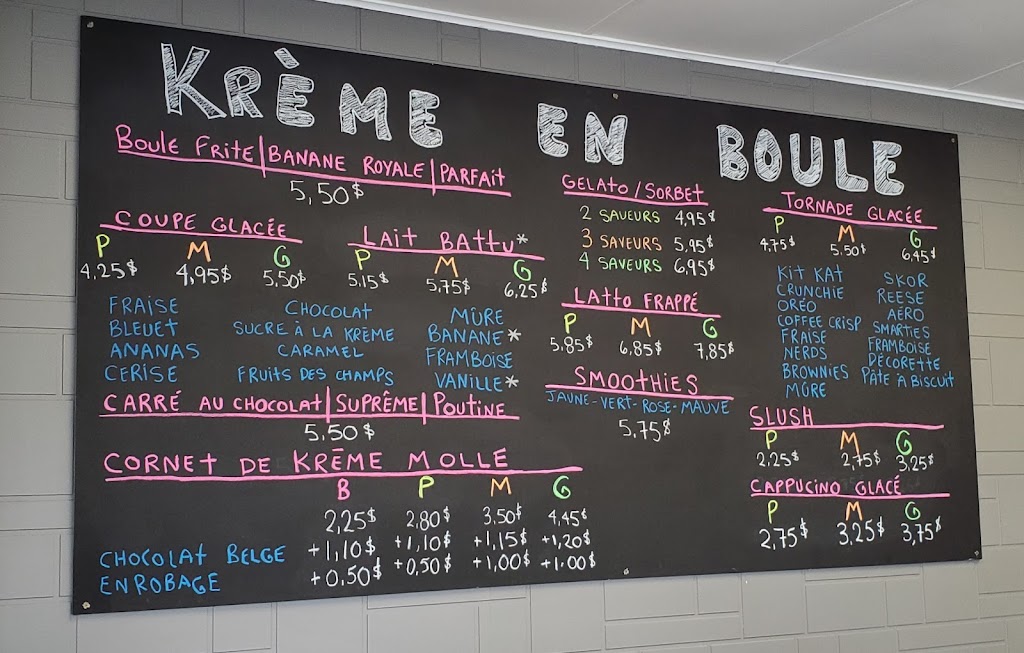 KRÈME EN BOULE
BOULE FRITE | BANANE ROYALE | PARFAIT
5,50$
COUPE GLACÉE
P M G
4,25$ 4,95$ 5,50$
LAIT BATTU*
P M G
5,15$ 5,75$ 6,25$
FRAISE CHOCOLAT MÛRE
BLEUET SUCRE À LA KRÈME BANANE*
ANANAS CARAMEL FRAMBOISE
CERISE FRUITS DES CHAMPS VANILLE*
CARRÉ AU CHOCOLAT | SUPRÊME | POUTINE
5,50$
CORNET DE KRÈME MOLLE
B P M G
2,25$ 2,80$ 3,50$ 4,45$
CHOCOLAT BELGE +1,10$ +1,10$ +1,15$ +1,20$
ENROBAGE +0,50$ +0,50$ +1,00$ +1,00$
GELATO/SORBET
2 SAVEURS 4,95$
3 SAVEURS 5,95$
4 SAVEURS 6,95$
LATTO FRAPPÉ
P M G
5,85$ 6,85$ 7,85$
SMOOTHIES
JAUNE-VERT-ROSE-MAUVE
5,75$
TORNADE GLACÉE
P M G
4,75$ 5,50$ 6,45$
KIT KAT SKOR
CRUNCHIE REESE
ORÉO AÉRO
COFFEE CRISP SMARTIES
FRAISE FRAMBOISE
NERDS DÉCORETTE
BROWNIES PÂTE À BISCUIT
MÛRE
SLUSH
P M G
2,25$ 2,75$ 3,25$
CAPPUCINO GLACÉ
P M G
2,75$ 3,25$ 3,75$